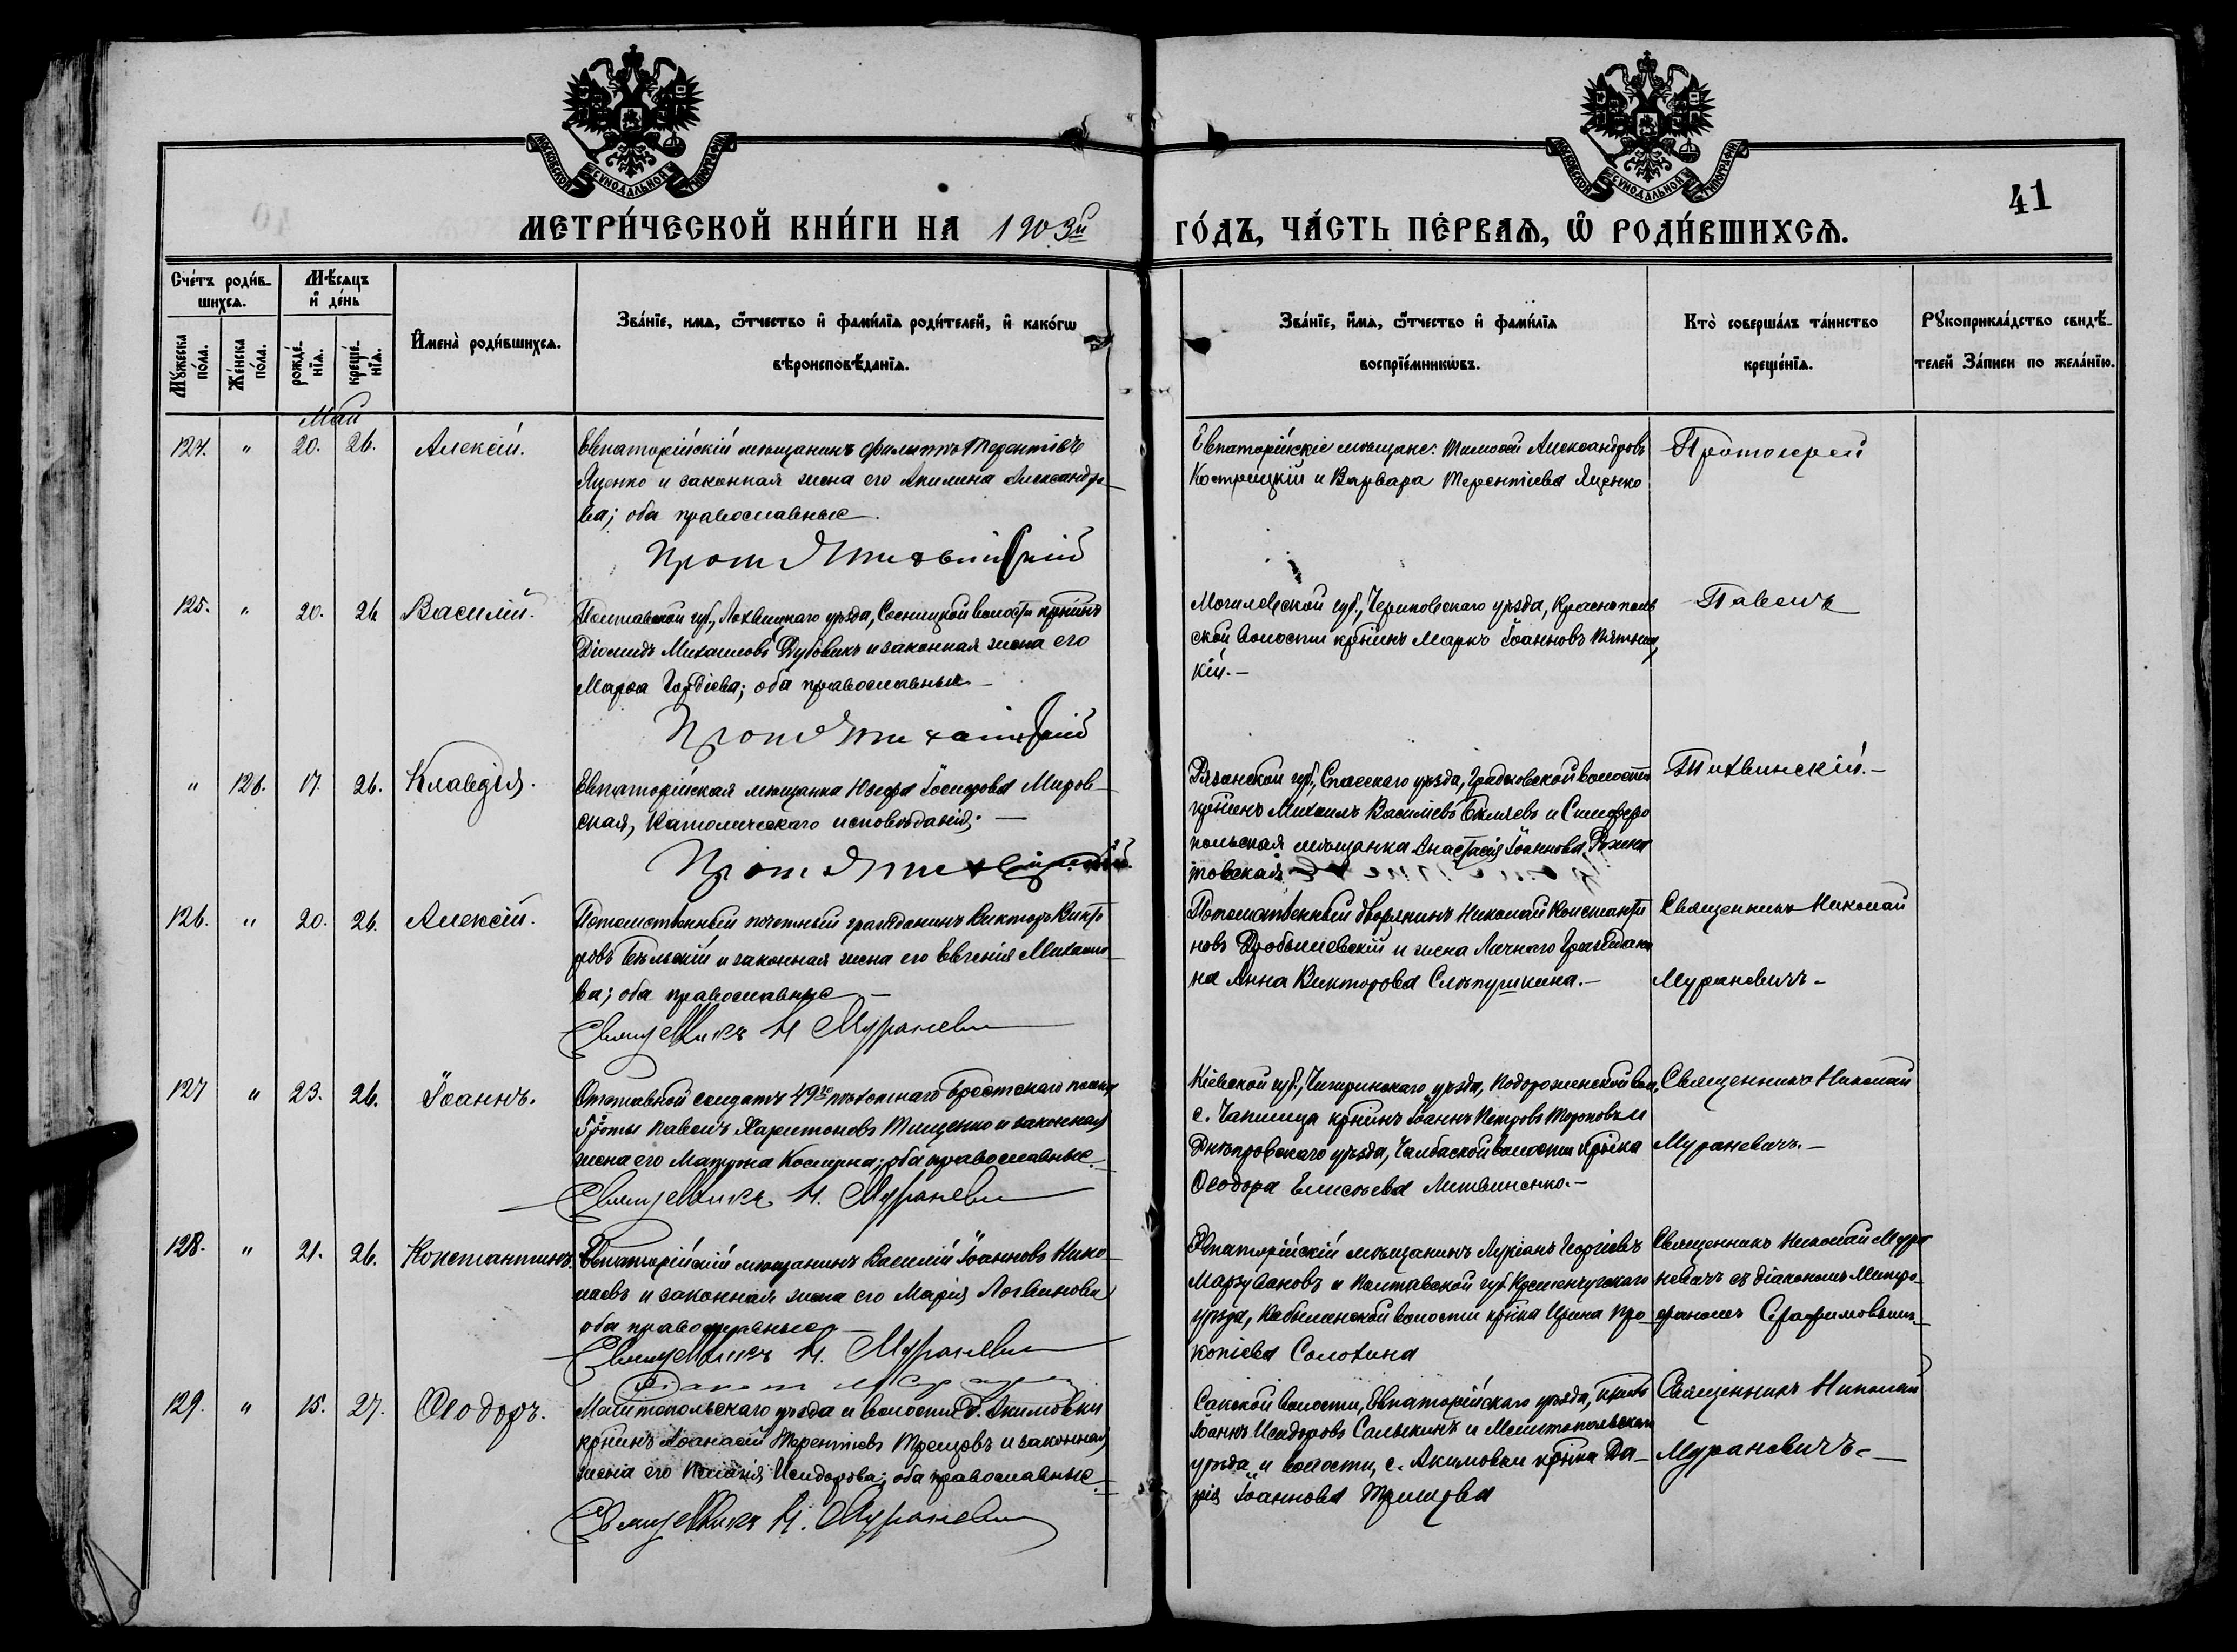 МОСКОВСКОЙ СѴНОДАЛЬНОЙ ТИПОГРАФІИ
МОСКОВСКОЙ СѴНОДАЛЬНОЙ ТИПОГРАФІИ
41
МЕТРИ́ЧЕСКОЙ КНИ́ГИ НА 1903й ГО́ДЪ, ЧА́СТЬ ПЕ́РВАѦ, Ѡ РОДИ́ВШИХСѦ.
Сче́тъ роди́в-
шихсѧ.
Мѣ́сѧцъ
и҆ де́нь
Мꙋ́жеска
по́ла.
Же́нска
по́ла.
рожде́-
нїѧ.
креще́-
нїѧ.
И҆мена̀ роди́вшихсѧ.
Зва́нїе, имѧ, ѿтчество и҆ фами́лїѧ роди́телей, и҆ како́гѡ
вѣроисповѣ́данїѧ.
Зва́нїе, и҆́мѧ, ѿтчество и҆ фами́лїѧ
воспрїе́мникѡвъ.
Кто̀ соверша́лъ та́инство
креще́нїѧ.
Рꙋкоприкла́дство свидѣ́-
телей За́писи по жела́нїю.
Май
124. " 20. 26. Алексій.
Евпаторійскій мѣщанинъ Филиппъ Терентіевъ
Яценко и законная жена его Акилина Александро-
ва; оба православные.
Прот Я Тихвинскій
Евпаторійскіе мѣщане: Тимоѳей Александровъ
Кострицкій и Варвара Терентіева Яценко
Протоіерей
125. " 20. 26 Василій.
Полтавской губ., Лохвицкаго уѣзда, Сенчицкой волости крнинъ
Діомидъ Михаиловъ Дубовикъ и законная жена его
Марѳа Гордіева; оба православные
Прот Я Тихвинскій
Могилевской губ., Чериковскаго уѣзда, Краснополь
ской волости крнинъ Маркъ Іоанновъ Пятниц
кій.-
Павелъ
" 126. 17. 26. Клавдія.
Евпаторійская мѣщанка Юзефа Іосифова Миров-
ская, Католическаго исповѣданія;
Прот Я Тихвинскій.
Рязанской губ., Спасскаго уѣзда, волости
крнинъ Михаилъ Василіевъ Бѣляевъ и Симферо
польская мѣщанка Анастасія Іоаннова
товская
Тихвинскій.-
126. " 20. 26. Алексій.
Потомственный почетный гражданинъ Викторъ Викто
ровъ Бѣльскій и законная жена его Евгенія Михаило-
ва; оба православные
Священникъ Н Мураневи
Потомственный дворянинъ Николай Константи
новъ Дробышевскій и жена Личнаго Граждани
на Анна Викторова Слѣпушкина.-
Священникъ Николай
Мураневичъ.
127 " 23. 26. Іоаннъ.
Отставной солдатъ 49го пѣхотнаго Брестскаго полка,
роты Павелъ Харитоновъ Тищенко и законная
жена его Матрона Космина; оба православные.
Священникъ Н. Мураневи
Кіевской губ., Чигиринскаго уѣзда, Подорожненской вол.,
с. Чапница крнинъ Іоаннъ Петровъ Тороповъ и
Днѣпровскаго уѣзда, Чалбаской волости крнка
Ѳеодора Елисѣева Литвиненко.-
Священникъ Николай
Мураневичъ.-
128. " 21. 26. Константинъ.
Евпаторійскій мѣщанинъ Василій Іоанновъ Нико-
лаевъ и законная жена его Марія Логвинова
оба православные
Священникъ Н. Мураневи
Евпаторійскій мѣщанинъ Лукіанъ Георгіевъ
и Полтавской губ. Кременчугскаго
уѣзда, Кобылянской волости крнка Ирина Про-
копіева Солохина
Священникъ Николай Мура
невичъ съ діакономъ Митро-
фаномъ Серафимовымъ
129. " 15. 27. Ѳеодоръ.
Мелитопольскаго уѣзда и волости с. Акимовки
крнинъ Аѳанасій Терентіевъ и законная
жена его Исидорова; оба православные.
Священникъ Н. Мураневи
Сакской волости, Евпаторійскаго уѣзда, крнинъ
Іоаннъ Исидоровъ Салыкинъ и Мелитопольскаго
уѣзда и волости, с. Акимовки крнка Да-
рія Іоаннова
Священникъ Николай
Мураневичъ.